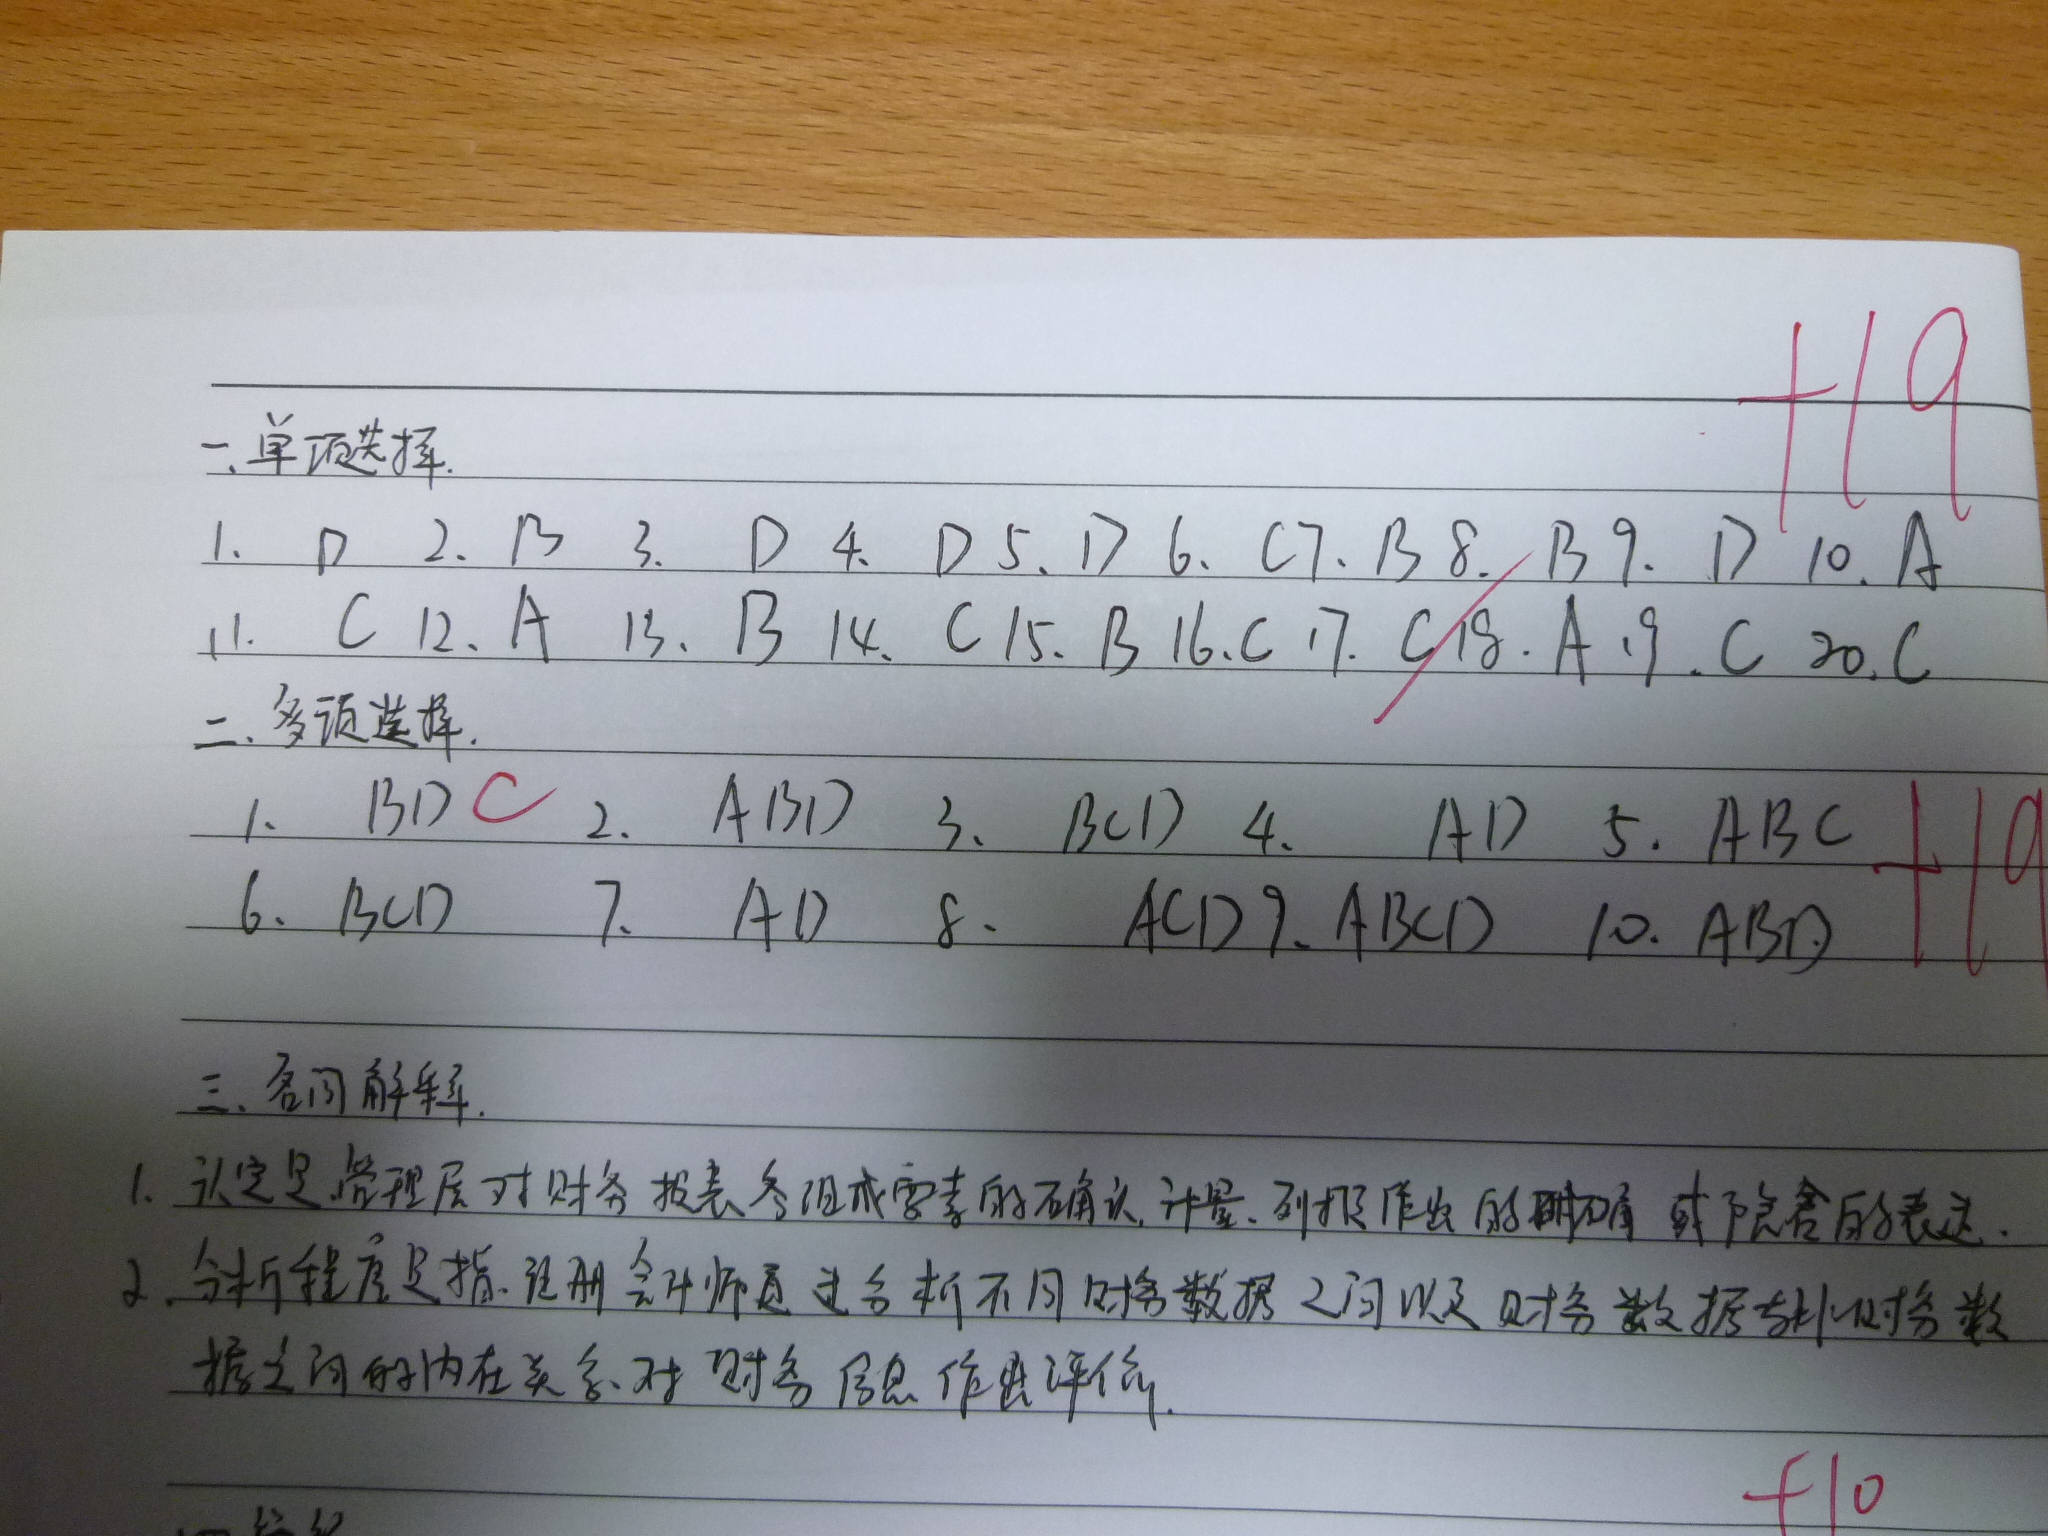 +19
一、单项选择.
1. D 2. B 3. D 4. D 5. D 6. C 7. B 8. B 9. D 10. A
11. C 12. A 13. B 14. C 15. B 16. C 17. C 18. A 19. C 20. C
二、多项选择.
1. BD C 2. ABD 3. BCD 4. AD 5. ABC +19
6. BCD 7. AD 8. ACD 9. ABCD 10. ABD
三、名词解释.
1. 认定是管理层对财务报表各组成要素的确认、计量、列报作出的明确或隐含的表达.
2. 分析程序是指注册会计师通过分析不同财务数据之间以及财务数据与非财务数
据之间的内在关系、对财务信息作出评价.
+10